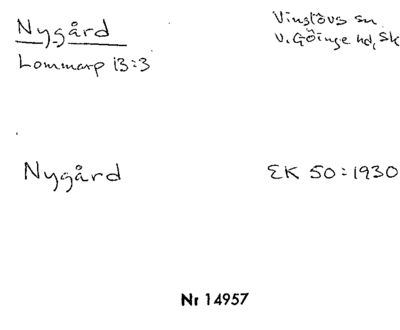 Nygård
Vinslövs sn
Lommarp 13:3
V. Göinge hd, Sk
Nygård
EK 50:1930
Nr 14957